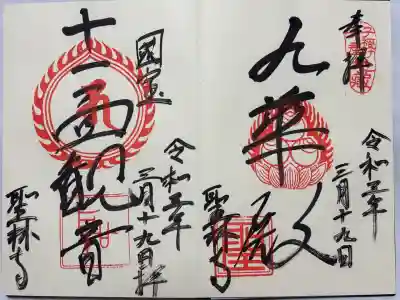 奉拝
九華殿
令和五年
三月十九日
聖林寺
國宝
十一面観音
令和五年
三月十九日拝
聖林寺